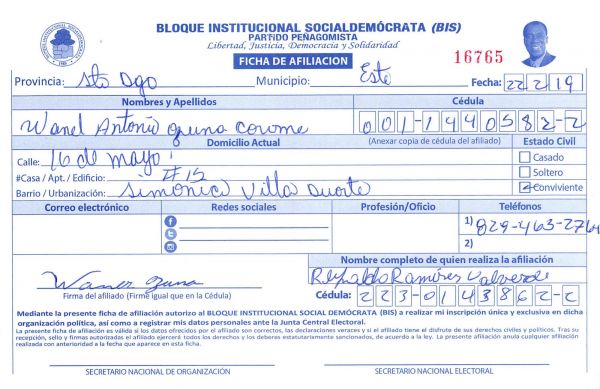 BLOQUE INSTITUCIONAL SOCIALDEMÓCRATA (BIS)
PARTIDO PEÑAGOMISTA
Libertad, Justicia, Democracia y Solidaridad
FICHA DE AFILIACION
16765
Provincia: Sto Dgo Municipio: Este Fecha: 22 2 19
Nombres y Apellidos Cédula
Wanel Antonio 001-1440582-2
Domicilio Actual (Anexar copia de cédula del afiliado) Estado Civil
Calle: 16 de mayo Casado
#Casa / Apt. / Edificio: #15 Soltero
Barrio / Urbanización: Simonico Villa Duarte Conviviente
Correo electrónico Redes sociales Profesión/Oficio Teléfonos
1) 829-463-2764
2)
Nombre completo de quien realiza la afiliación
Reynaldo Ramires Valverde
Firma del afiliado (Firme igual que en la Cédula) Cédula: 223-0143862-2
Mediante la presente ficha de afiliación autorizo al BLOQUE INSTITUCIONAL SOCIAL DEMÓCRATA (BIS) a realizar mi inscripción única y exclusiva en dicha
organización política, así como a registrar mis datos personales ante la Junta Central Electoral.
La presente ficha de afiliación es válida si los datos ofrecidos por el afiliado son correctos, las declaraciones veraces y si el afiliado tiene el disfrute de sus derechos civiles y políticos. Tras su
recepción, sello y firmas autorizadas el afiliado ejercerá todos los derechos y los deberes estatutariamente sancionados, de acuerdo a la ley. La presente afiliación anula cualquier afiliación
realizada con anterioridad a la fecha que aparece en esta ficha.
SECRETARIO NACIONAL DE ORGANIZACIÓN SECRETARIO NACIONAL ELECTORAL